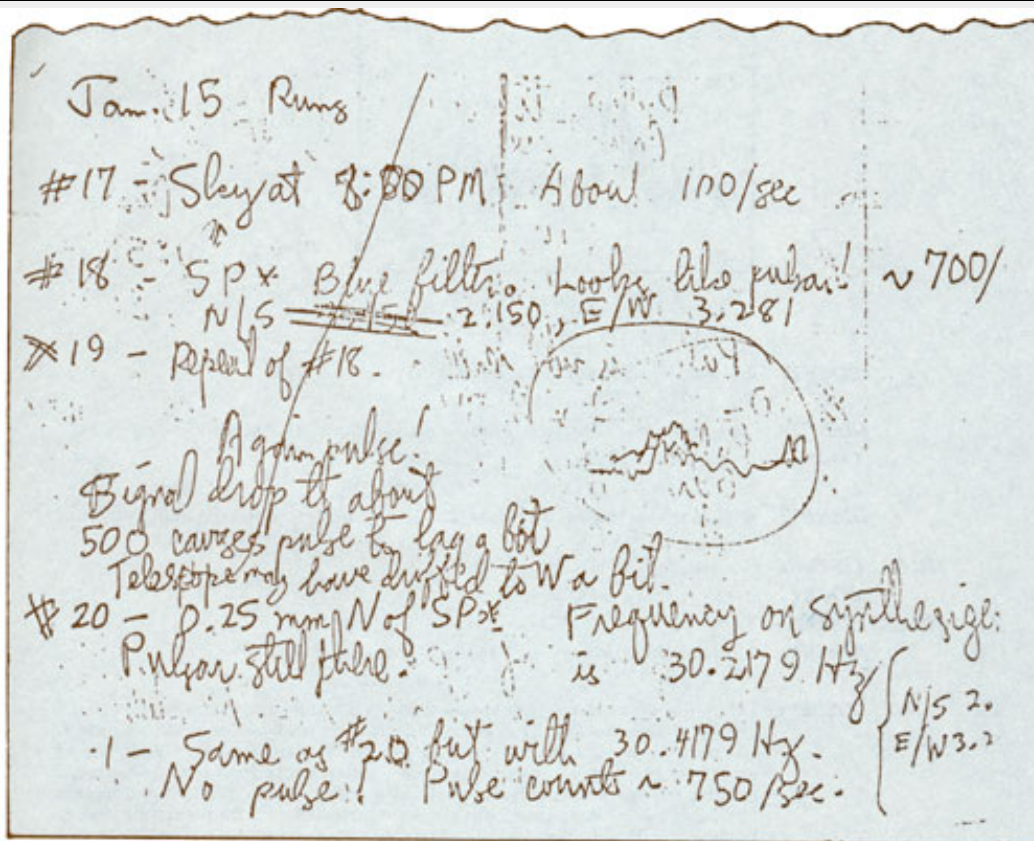 Jan. 15 Runs
#17 - Sky at 8:00 PM. About 100/sec
#18 - SP* Blue filter. Looks like pulsar! ~ 700/
N/S 2.150, E/W 3.281
#19 - Repeat of #18.
Again pulse!
Signal drop to about
500 causes pulse to lag a bit
Telescope may have drifted to W a bit.
#20 - 0.25 mm N of SP*
Pulsar still there.
Frequency on synthesize
is 30.2179 Hz
N/S 2.
E/W 3.2
1 - Same as #20 but with 30.4179 Hz.
No pulse! Pulse counts ~ 750/sec.